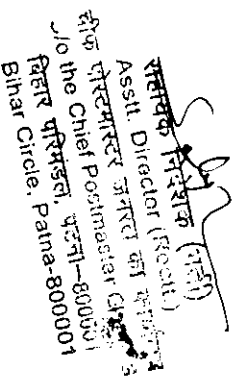 सहायक निदेशक (भर्ती)
Asstt. Director (Rectt.)
चीफ पोस्टमास्टर जनरल का कार्यालय
o/o the Chief Postmaster
बिहार परिमंडल, पटना-800001
Bihar Circle, Patna-800001